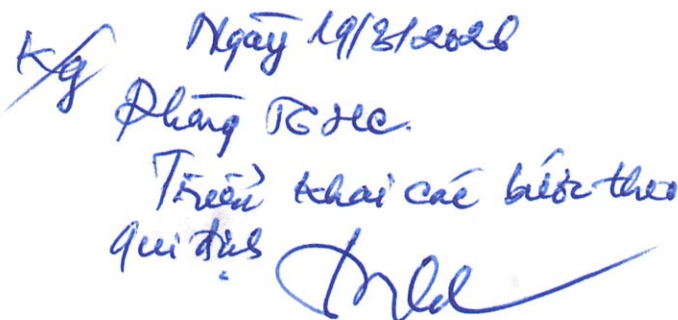 Ngày 19/3/2026
K/g Phòng TCHC.
Triển khai các bước theo
qui định